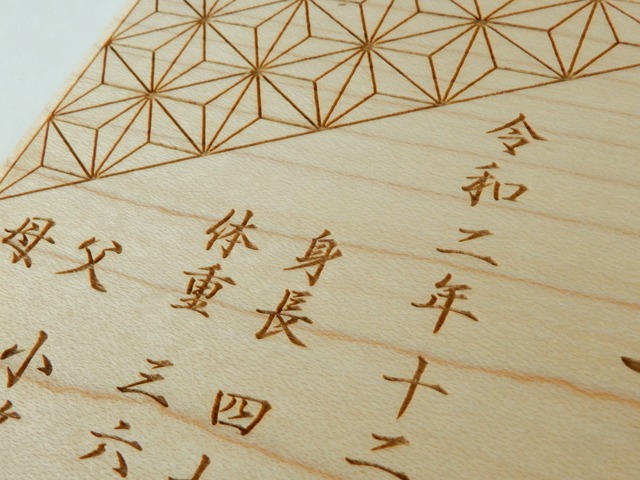 令和二年十二
身長四
体重三六
父
母小